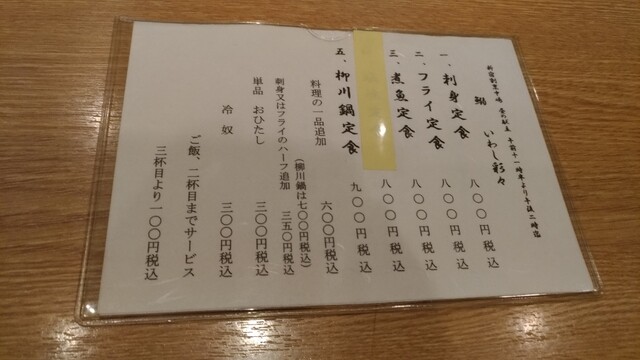 新宿割烹中嶋 昼の献立 午前十一時半より午後二時迄
鰯 いわし彩々
一、刺身定食 八〇〇円税込
二、フライ定食 八〇〇円税込
三、煮魚定食 八〇〇円税込
八〇〇円税込
五、柳川鍋定食 九〇〇円税込
料理の一品追加 六〇〇円税込
(柳川鍋は七〇〇円税込)
刺身又はフライのハーフ追加 三五〇円税込
単品 おひたし 三〇〇円税込
冷奴 三〇〇円税込
ご飯、二杯目までサービス
三杯目より一〇〇円税込